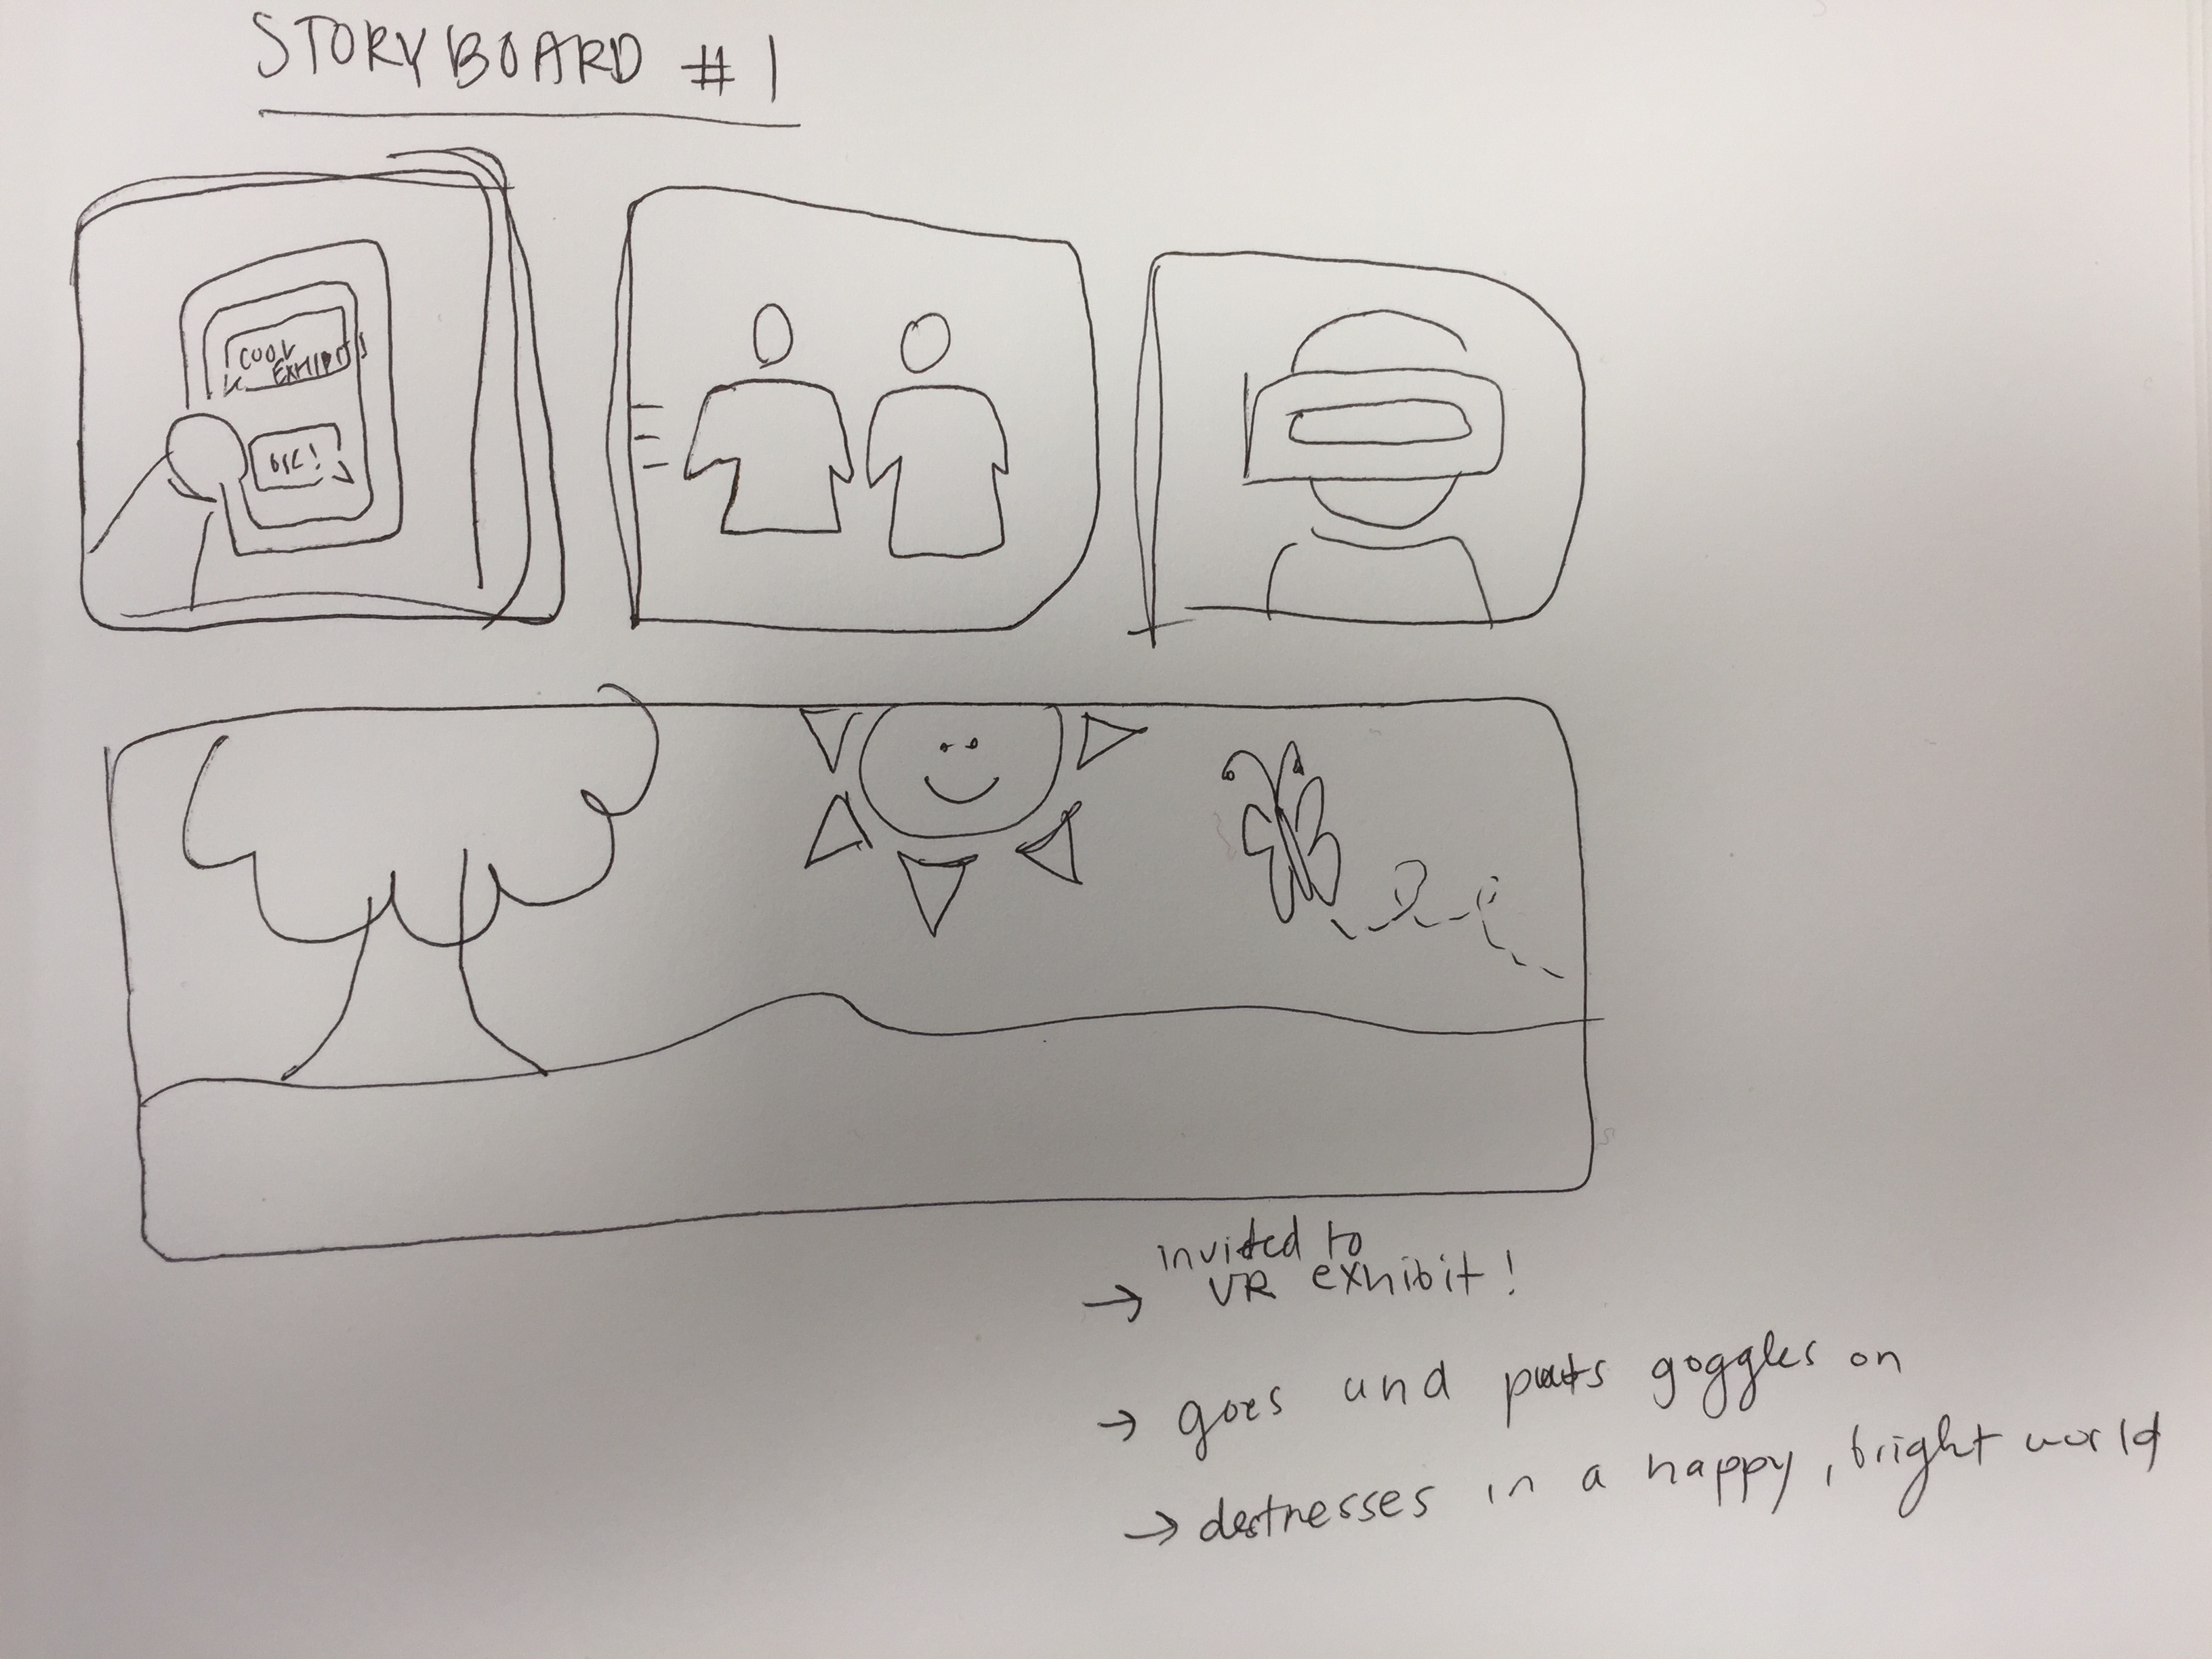 STORYBOARD #1
COOL
EXHIBITS
invited to
→ VR exhibit!
→ goes and puts goggles on
→ destresses in a happy, bright world